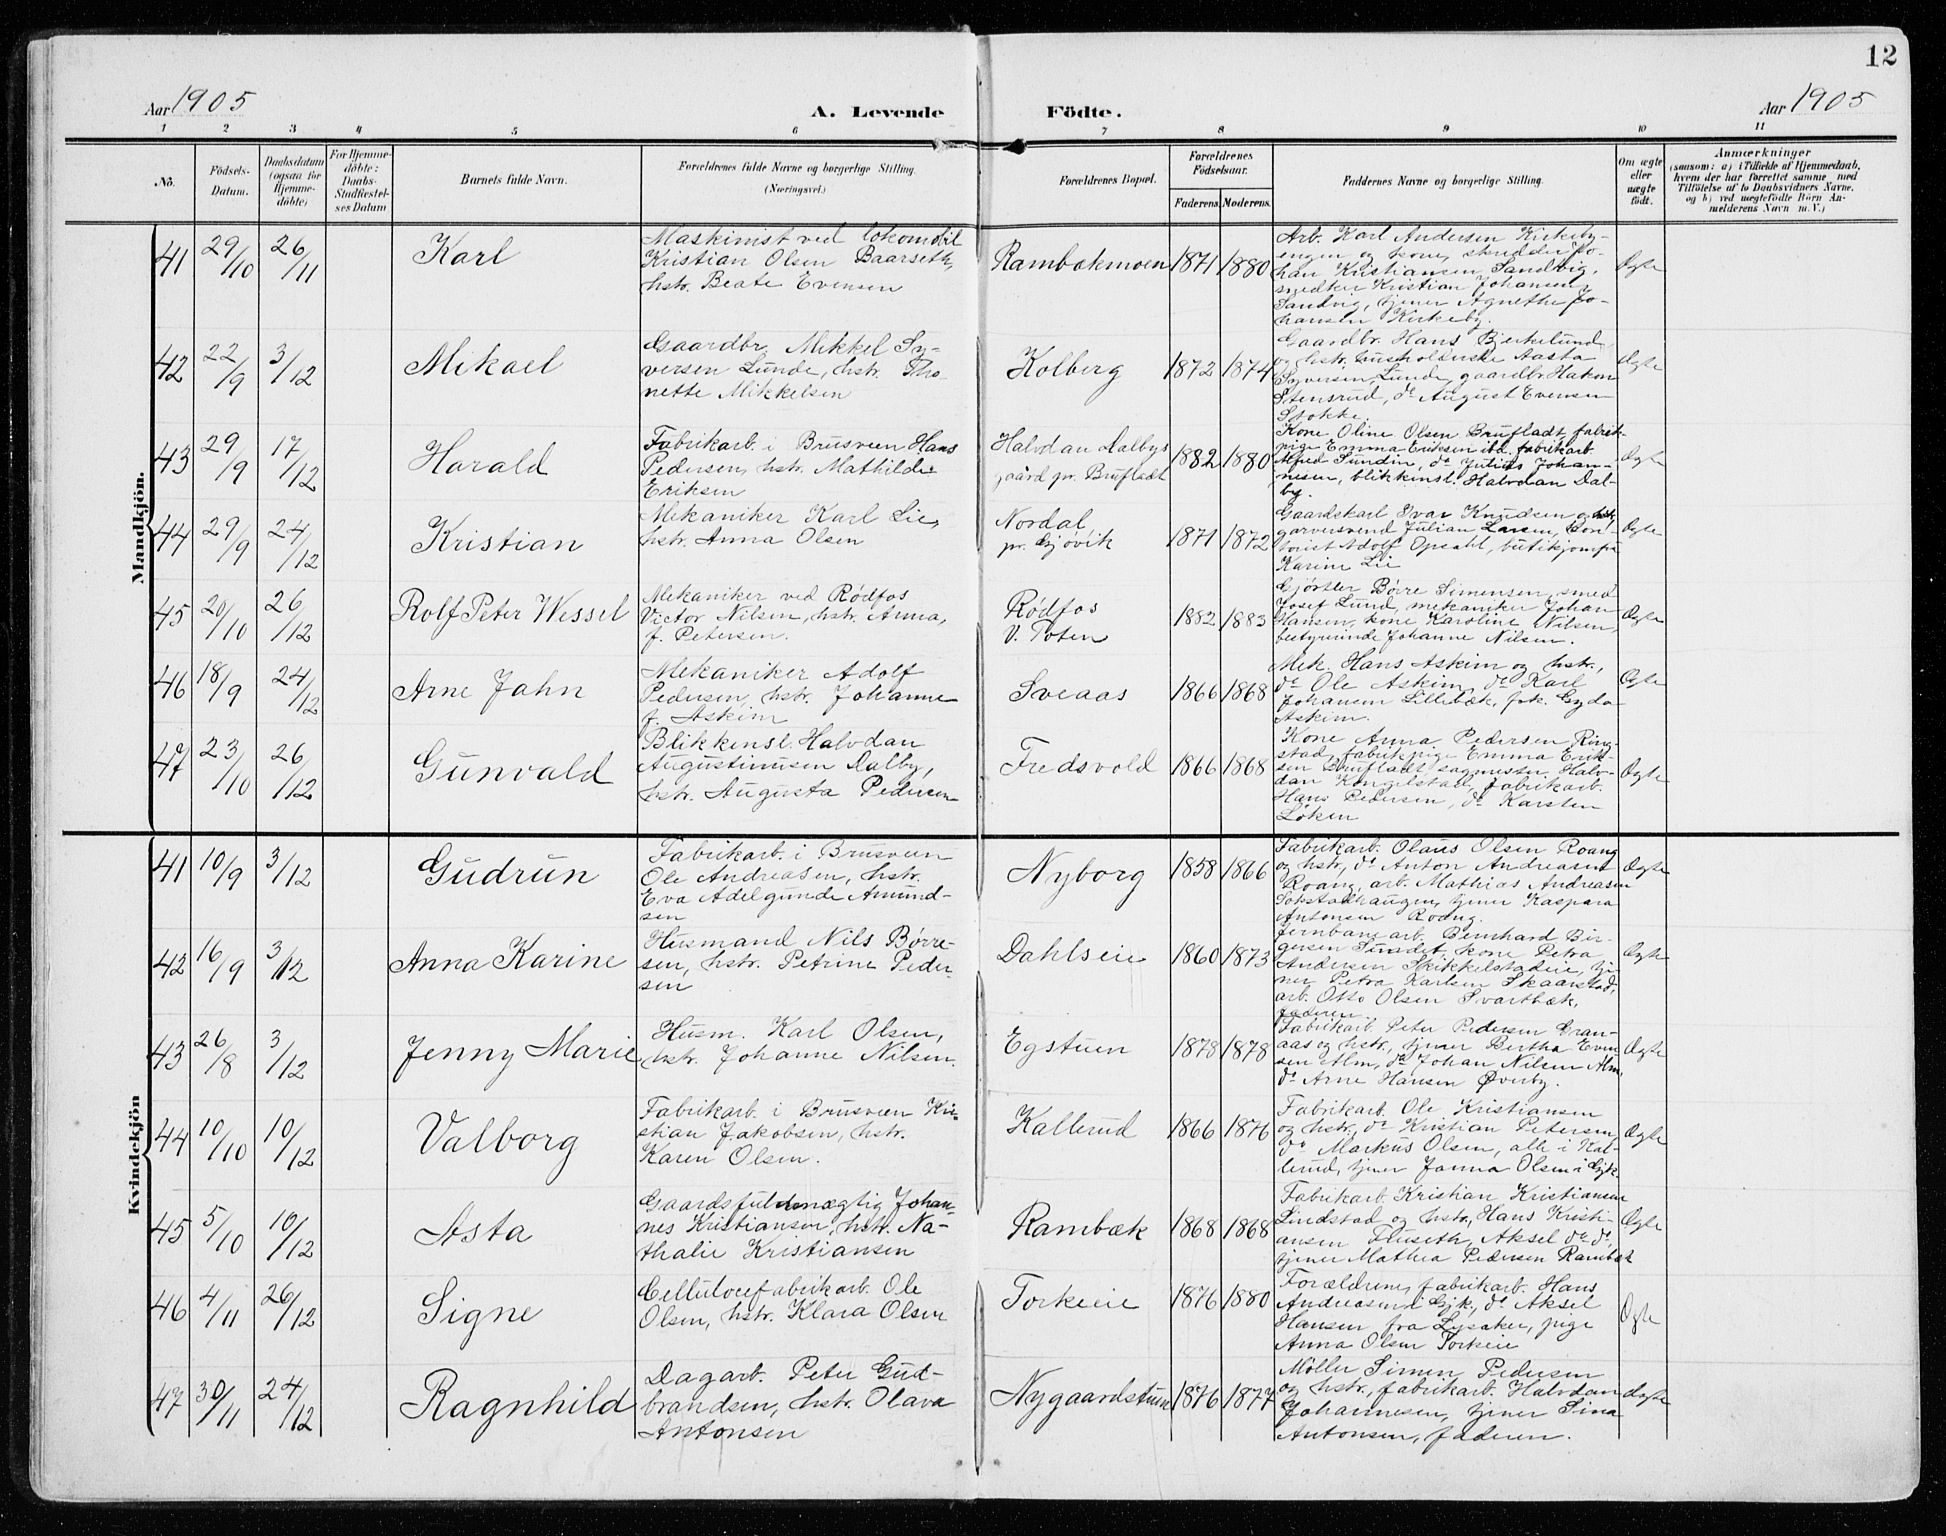 12
Aar 1905
A. Levende Födte.
Aar 1905
1 2 3 4 5 6 7 8 9 10 11
No.
Födsels-
Datum.
Daabsdatum
(ogsaa for
Hjemme-
döbte)
For Hjemme-
döbte:
Daabs-
Stadfæstel-
ses Datum
Barnets fulde Navn.
Forældrenes fulde Navne og borgerlige Stilling.
(Næringsvei.)
Forældrenes Bopæl.
Forældrenes
Födselsaar.
Faderens. Moderens.
Faddernes Navne og borgerlige Stilling.
Om ægte
eller
uægte
födt.
Anmærkninger
(saasom: a) i Tilfælde af Hjemmedaab,
hvem der har forrettet samme, med
Tilföielse af to Daabsvidners Navne,
og b) ved uægtefödte Börn An-
melderens Navn m. V.)
Mandkjön.
41 29/10 26/11 Karl
Maskinist ved lokomobil
Kristian Olsen Baarseth,
hstr. Beate Evensen
Rambækmoen 1871 1880
Arb. Karl Andersen Kirkeby-
engen og kone, skrædder Jo-
han Kristiansen Sandvig,
snedker Kristian Johansen
Sandvig, tjener Agnethe Jo-
hansen Kirkeby.
Ægte
42 22/9 3/12 Mikael
Gaardbr. Mikkel Sy-
versen Lunde, hstr. Tho-
nette Mikkelsen
Kolberg 1872 1874
Gaardbr. Hans Bjerkelund
og hstr., husholderske Aasta
Syversen Lunde, gaardbr. Hakon
Stensrud, do August Evensen
Stokke.
Ægte
43 29/9 17/12 Harald
Fabrikarb. i Brusveen Hans
Pedersen, hstr. Mathilde
Eriksen
Halvdan Dalbys
gaard pr. Brufladt 1882 1880
Kone Oline Olsen Brufladt, fabrik-
pige Emma Eriksen ibd. fabrikarb.
Alfred Sundin, do Julius Johan-
nesen, blikkensl. Halvdan Dal-
by.
Ægte
44 29/9 24/12 Kristian
Mekaniker Karl Lie,
hstr. Anna Olsen
Nordal
pr. Gjøvik 1871 1872
Gaardskarl Ivar Knudsen og hstr.
garversvend Julian Larsen, kon-
torist Adolf Opsahl, butikjomfru
Karine Lie
Ægte
45 20/10 26/12 Rolf Peter Wessel
Mekaniker ved Rødfos
Victor Nilsen, hstr. Anna,
f. Petersen.
Rødfos
V. Toten 1882 1883
Gjørtler Børre Simensen, smed
Josef Lund, mekaniker Johan
Hansen, kone Karoline Nilsen,
bestyrinde Johanne Nilsen.
Ægte
46 18/9 24/12 Arne Jahn
Mekaniker Adolf
Pedersen, hstr. Johanne
f. Askim
Sveaas 1866 1868
Mek. Hans Askim og hstr.,
do Ole Askim, do Karl
Johansen Lillebæk, frk. Gyda
Askim.
Ægte
47 23/10 26/12 Gunvald
Blikkensl. Halvdan
Augustinusen Dalby,
hstr. Augusta Pedersen
Fredsvold 1866 1868
Kone Anna Pedersen Ring-
stad, fabrikpige Emma Erik-
sen Brufladt, sagmester Halv-
dan Kongelstad, fabrikarb.
Hans Pedersen, do Karsten
Løken
Ægte
Kvindekjön
41 10/9 3/12 Gudrun
Fabrikarb. i Brusveen
Ole Andreasen, hstr.
Eva Adelgunde Amund-
sen
Nyborg 1858 1866
Fabrikarb. Olaus Olsen Roang
og hstr., do Anton Andreasen
Roang, arb. Mathias Andreasen
Sokstadhaugen, tjener Kaspara
Antonsen Roang.
Ægte
42 16/9 3/12 Anna Karine
Husmand Nils Børre-
sen, hstr. Petrine Peder-
sen
Dahlseie 1860 1873
Jernbanearb. Bernhard Bir-
gersen Sundet, kone Petra
Andersen Skikkelstadeie, tje-
ner Petra Karlsen Skaarstad,
arb. Otto Olsen Svartbæk,
faderen.
Ægte
43 26/8 3/12 Jenny Marie
Husm. Karl Olsen,
hstr. Johanne Nilsen.
Egstuen 1878 1878
Fabrikarb. Peter Pedersen Gran-
aas og hstr., tjener Bertha Even-
sen Alm, do Johan Nilsen Alm,
do Arne Hansen Øverby.
Ægte
44 10/10 10/12 Valborg
Fabrikarb. i Brusveen Kri-
stian Jakobsen, hstr.
Karen Olsen.
Kallerud 1866 1876
Fabrikarb. Ole Kristiansen
og hstr., do Kristian Petersen,
do Markus Olsen, alle i Kal-
lerud, tjener Janna Olsen i Gjk.
Ægte
45 5/10 10/12 Asta
Gaardsfuldmægtig Johan-
nes Kristiansen, hstr. Na-
thalie Kristiansen
Rambæk 1868 1868
Fabrikarb. Kristian Kristiansen
Lindstad og hstr., Hans Kristi-
ansen Fluseth, Aksel do do,
tjener Mathea Pedersen Rambæk
Ægte
46 4/11 26/12 Signe
Cellulosefabrikarb. Ole
Olsen, hstr. Klara Olsen
Torkeie 1876 1880
Forældrene, fabrikarb. Hans
Andreasen i Gjk., do Aksel
Hansen fra Lysaker, pige
Anna Olsen Torkeie
Ægte
47 30/11 24/12 Ragnhild
Dagarb. Peter Gud-
brandsen, hstr. Olava
Antonsen
Nygaardstuen 1876 1877
Møller Simen Pedersen
og hstr., fabrikarb. Halvdan
Johannesen, tjener Sina
Antonsen, faderen.
Ægte